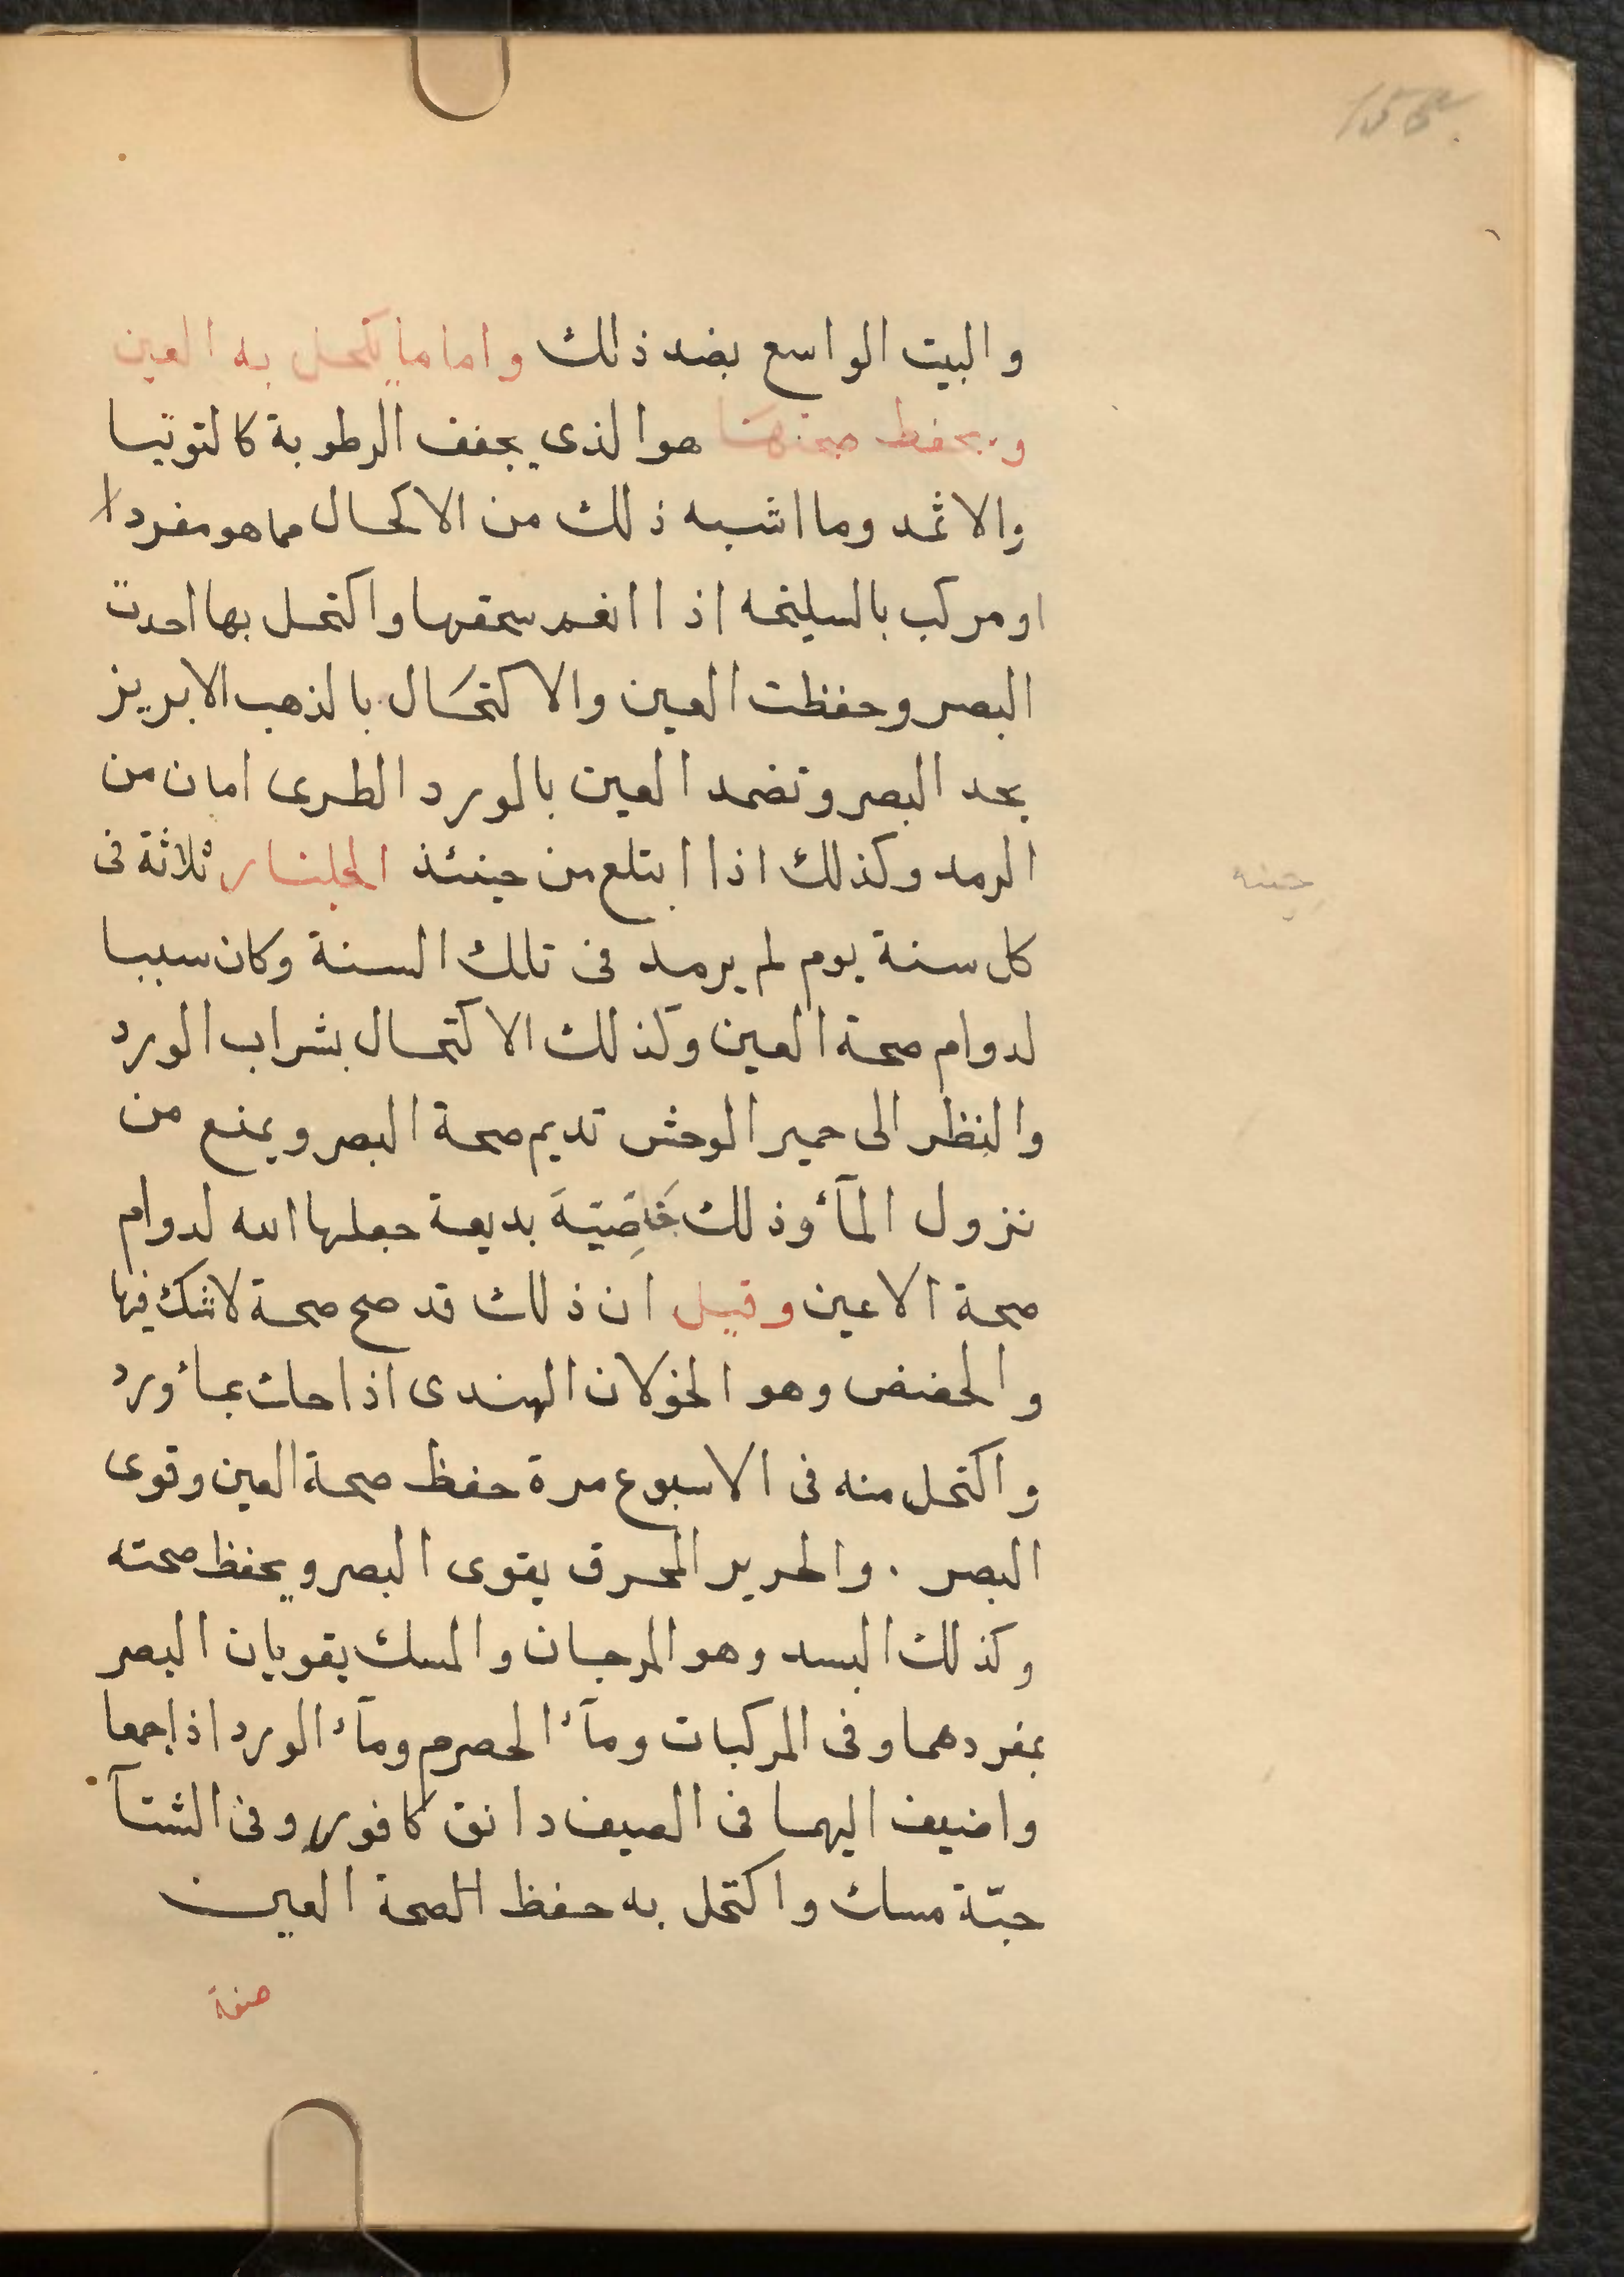 والبيت الواسع بضد ذلك واما ما يكحل به العين
ويحفظ صحتها هو الذى يجفف الرطوبة كالتوتيا
والاثمد وما اشبه ذلك من الاكحال مما هو مفردا
او مركب بالسليخه اذا انغم سحقها واكتحل بها احدت
البصر وحفظت العين والاكتحال بالذهب الابريز
يحد البصر وتضمد العين بالورد الطرى امان من
الرمد وكذلك اذا ابتلع من جنئذ الجلنار ثلاثة فى
كل سنة يوم لم يرمد فى تلك السنة وكان سببا
لدوام صحة العين وكذلك الاكتحال بشراب الورد
والنظر الى حمير الوحش تديم صحة البصر ويمنع من
نزول المآء وذلك خَاصِّيّةَ بديعة جعلها الله لدوام
صحة الاعين وقيل ان ذلك قد صح صحة لا شك فيها
والحضض وهو الخولان الهندى اذا حك بمأ ورد
واكتحل منه فى الاسبوع مرة حفظ صحة العين وقوى
البصر . والحرير المحرق يقوى البصر ويحفظ صحته
وكذلك البسد وهو المرجان والمسك يقويان البصر
بمفردهما وفى المركبات ومآء الحصرم ومآء الورد اذا جمعا
واضيف اليهما فى الصيف دانق كافور وفى الشتآ
حبّة مسك واكتحل به حفظ الصحة العين
صفة